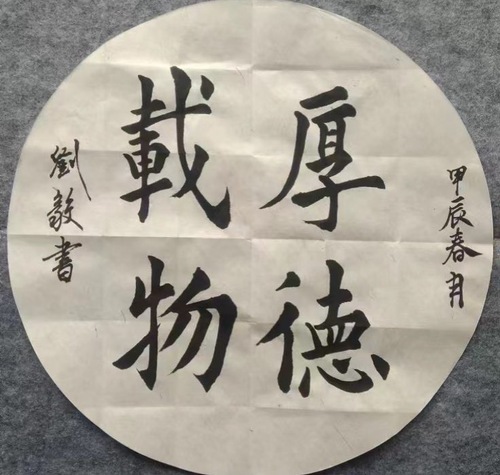 甲辰春月
厚德
載物
劉毅書